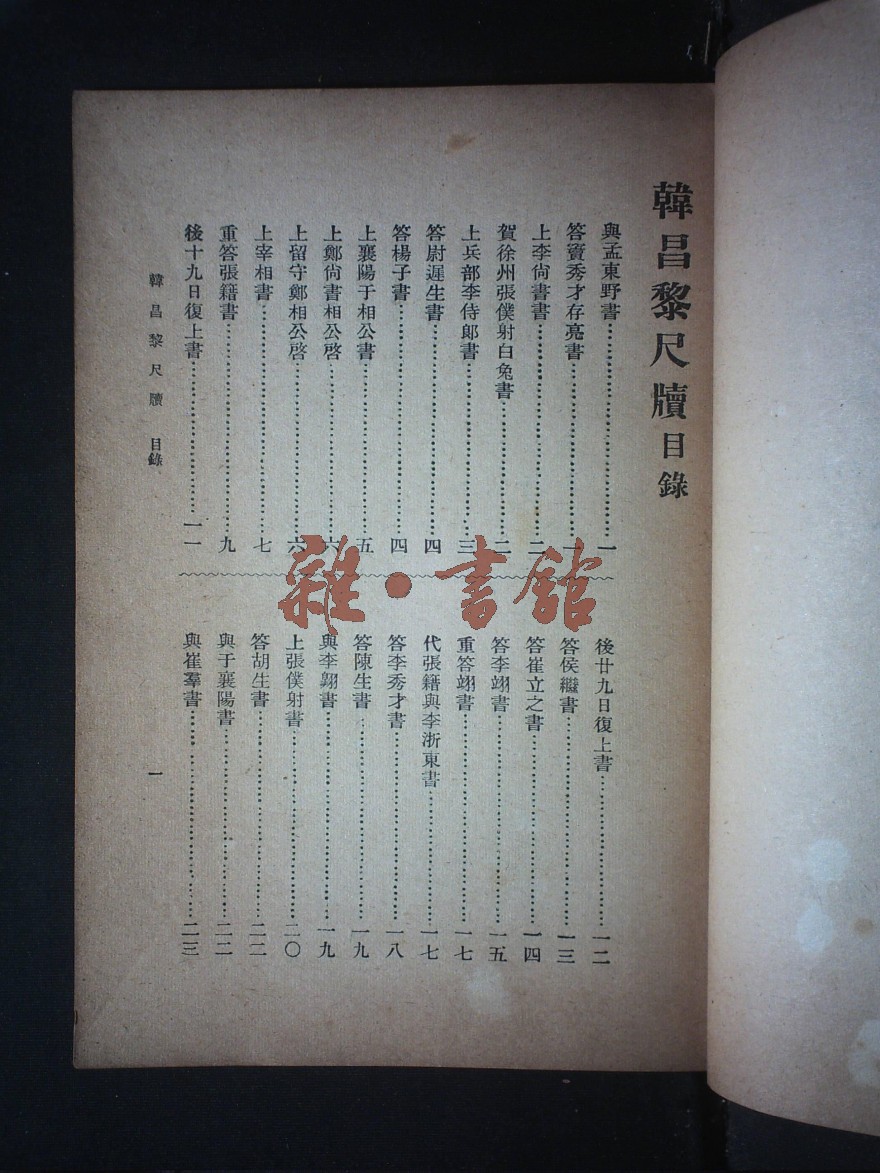 韓昌黎尺牘目錄
與孟東野書⋯⋯一
答竇秀才存亮書⋯⋯一
上李尙書書⋯⋯二
賀徐州張僕射白兔書⋯⋯二
上兵部李侍郎書⋯⋯三
答尉遲生書⋯⋯四
答楊子書⋯⋯四
上襄陽于相公書⋯⋯五
上鄭尙書相公啓⋯⋯六
上留守鄭相公啓⋯⋯六
上宰相書⋯⋯七
重答張籍書⋯⋯九
後十九日復上書⋯⋯一一
後廿九日復上書⋯⋯一二
答侯繼書⋯⋯一三
答崔立之書⋯⋯一四
答李翊書⋯⋯一五
重答翊書⋯⋯一七
代張籍與李浙東書⋯⋯一七
答李秀才書⋯⋯一八
答陳生書⋯⋯一九
與李翺書⋯⋯一九
上張僕射書⋯⋯二〇
答胡生書⋯⋯二二
與于襄陽書⋯⋯二二
與崔羣書⋯⋯二三
韓昌黎尺牘 目錄
一
雜·書館